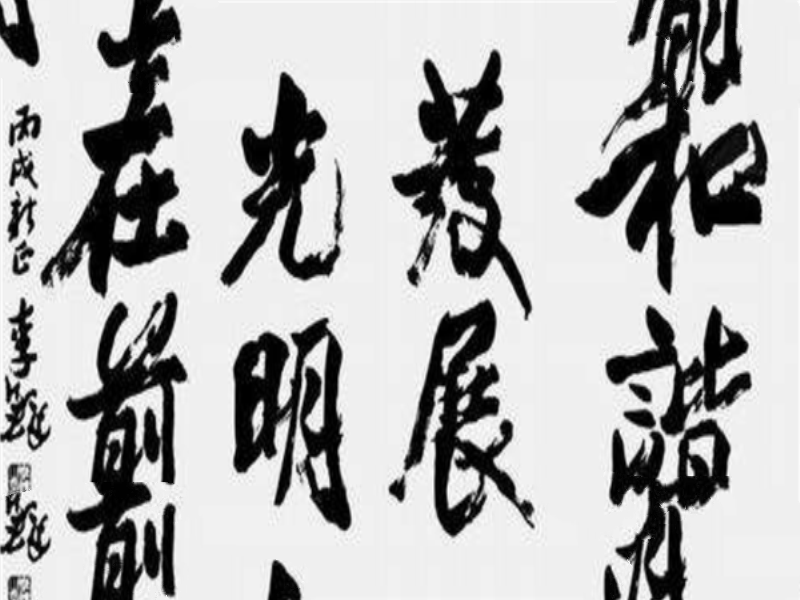 和諧
發展
光明
在前
丙戌新正 李